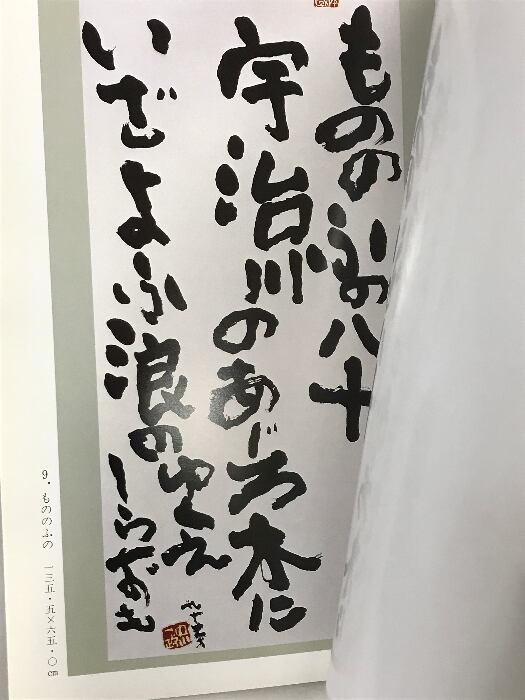 もののふの八十
宇治川のあじろ木に
いざよふ浪のゆくえ
しらずも
9. もののふの 一三五・五×六五・〇cm